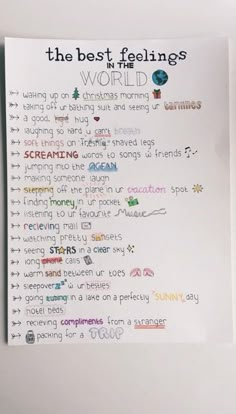 the best feelings
IN THE
WORLD
waking up on christmas morning
taking off ur bathing suit and seeing ur tanlines
a good, long hug
laughing so hard u can't breath
soft things on freshly shaved legs
SCREAMING words to songs w friends
jumping into the OCEAN
making someone laugh
stepping off the plane in ur vacation spot
finding money in ur pocket
listening to ur favourite music
recieving mail
watching pretty sunsets
seeing STARS in a clear sky
long phone calls
warm sand between ur toes
sleepovers w ur besties
going tubing in a lake on a perfectly SUNNY day
hotel beds
recieving compliments from a stranger
packing for a TRIP